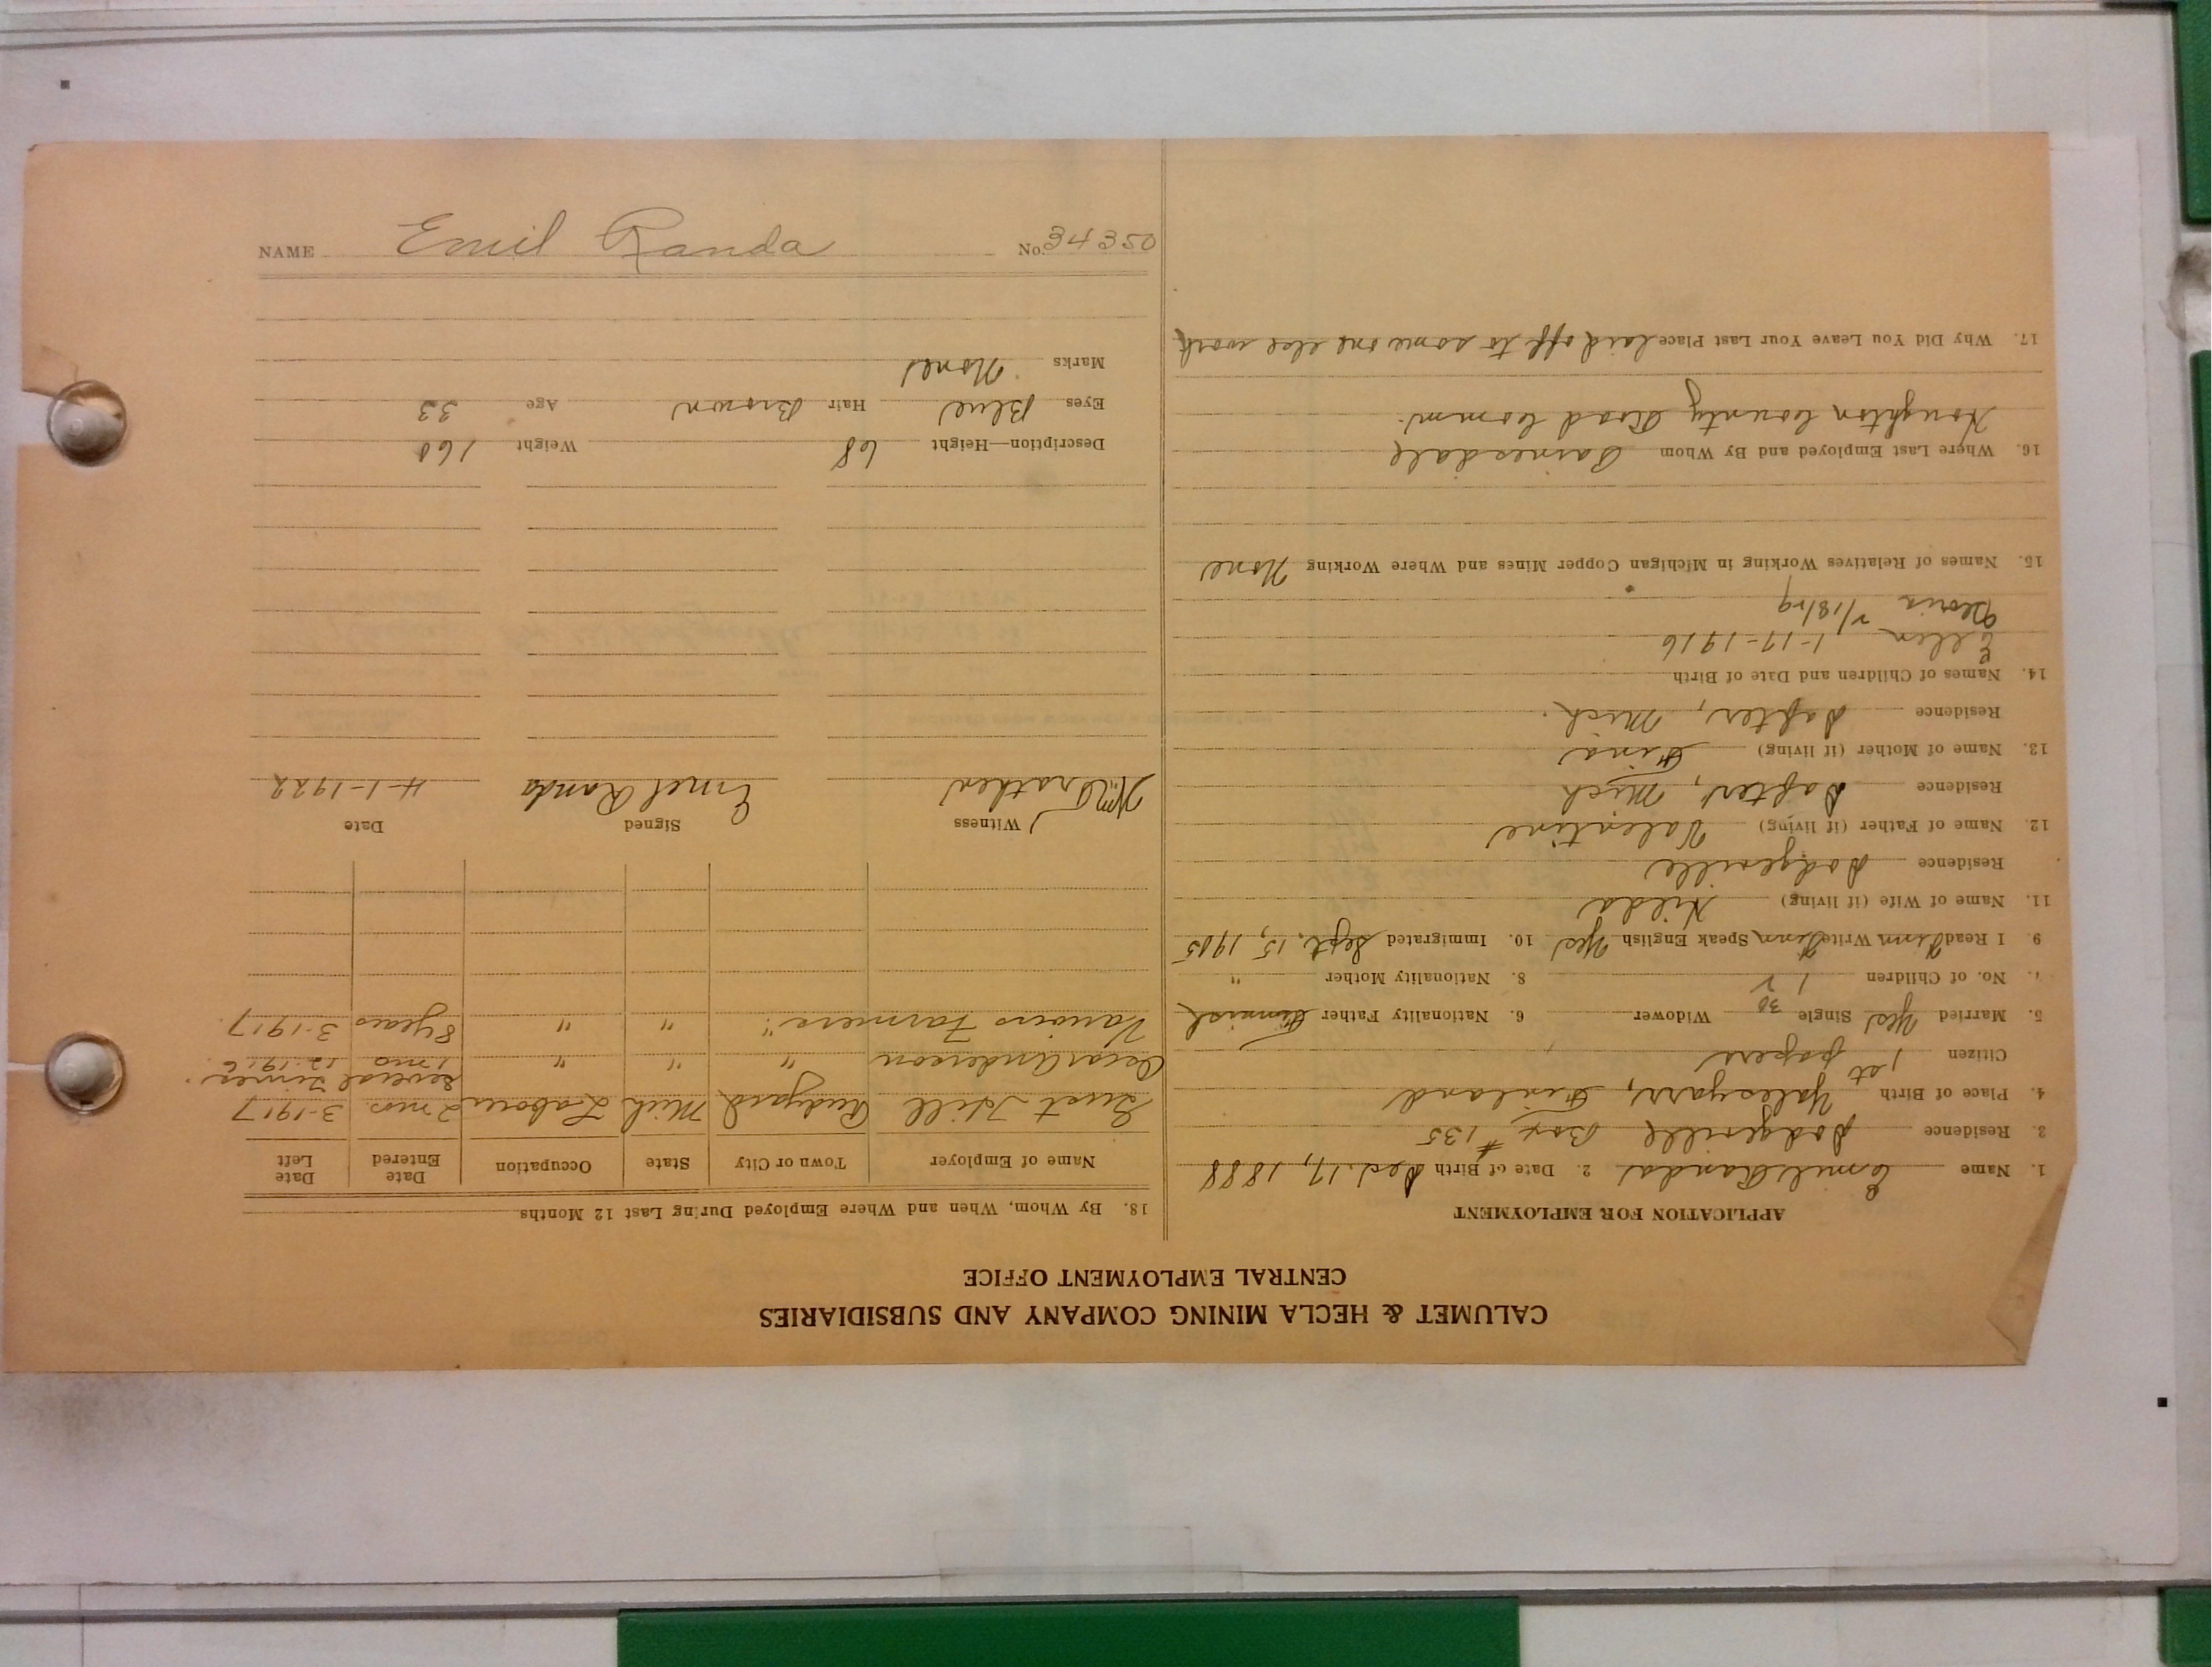 CALUMET & HECLA MINING COMPANY AND SUBSIDIARIES
CENTRAL EMPLOYMENT OFFICE
APPLICATION FOR EMPLOYMENT
1. Name Emil Randa 2. Date of Birth Ded. 17, 1888
3. Residence Dodgeville Box #135
4. Place of Birth Finland
Citizen 1st papers
5. Married Yes Single 30 Widower 6. Nationality Father Finnish
7. No. of Children 1 2 8. Nationality Mother "
9 I Read Finn Write Finn Speak English Yes 10. Immigrated Sept. 15, 1905
11. Name of Wife (if living) Hilda
Residence Dodgeville
12. Name of Father (if living) Valentine
Residence Dafter, Mich
13. Name of Mother (if living) Fina
Residence Dafter, Mich.
14. Names of Children and Date of Birth
Ellen 1-17-1916
Gloria
15. Names of Relatives Working in Michigan Copper Mines and Where Working None
16. Where Last Employed and By Whom Painesdale
Houghton County Road Comm.
17. Why Did You Leave Your Last Place laid off to some one else work
18. By Whom, When and Where Employed During Last 12 Months
Name of Employer Town or City State Occupation Date Entered Date Left
Gust Hill Rudyard Mich Laborer 2 mos. 3-1917
several times.
Oscar Anderson " " " 1 mo 12-1916
Various Farmers " " " 8 years 3-1917
Witness Signed Date
Emel Randa 4-1-1922
Description—Height 68 Weight 160
Eyes Blue Hair Brown Age 33
Marks None
NAME Emil Randa No. 34350